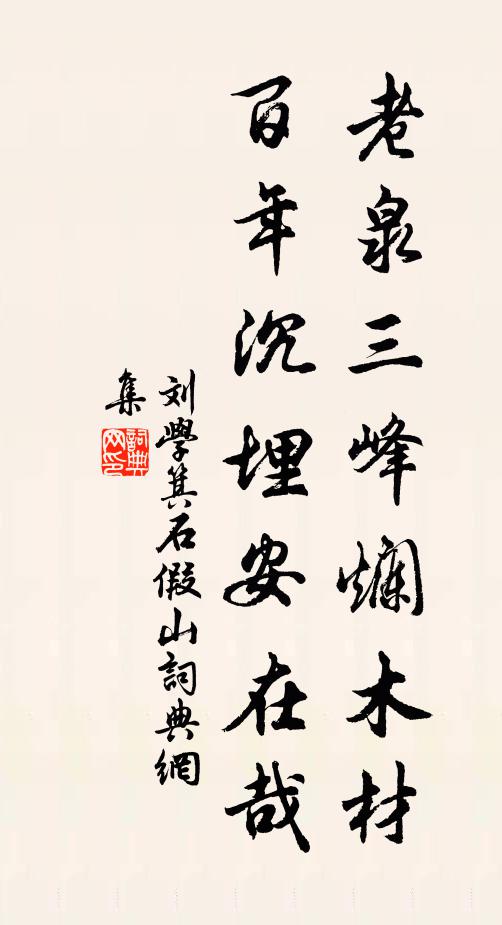 老泉三峰爛木材
百年沉埋安在哉
刘學箕石假山詞典網
集
詞典
网印